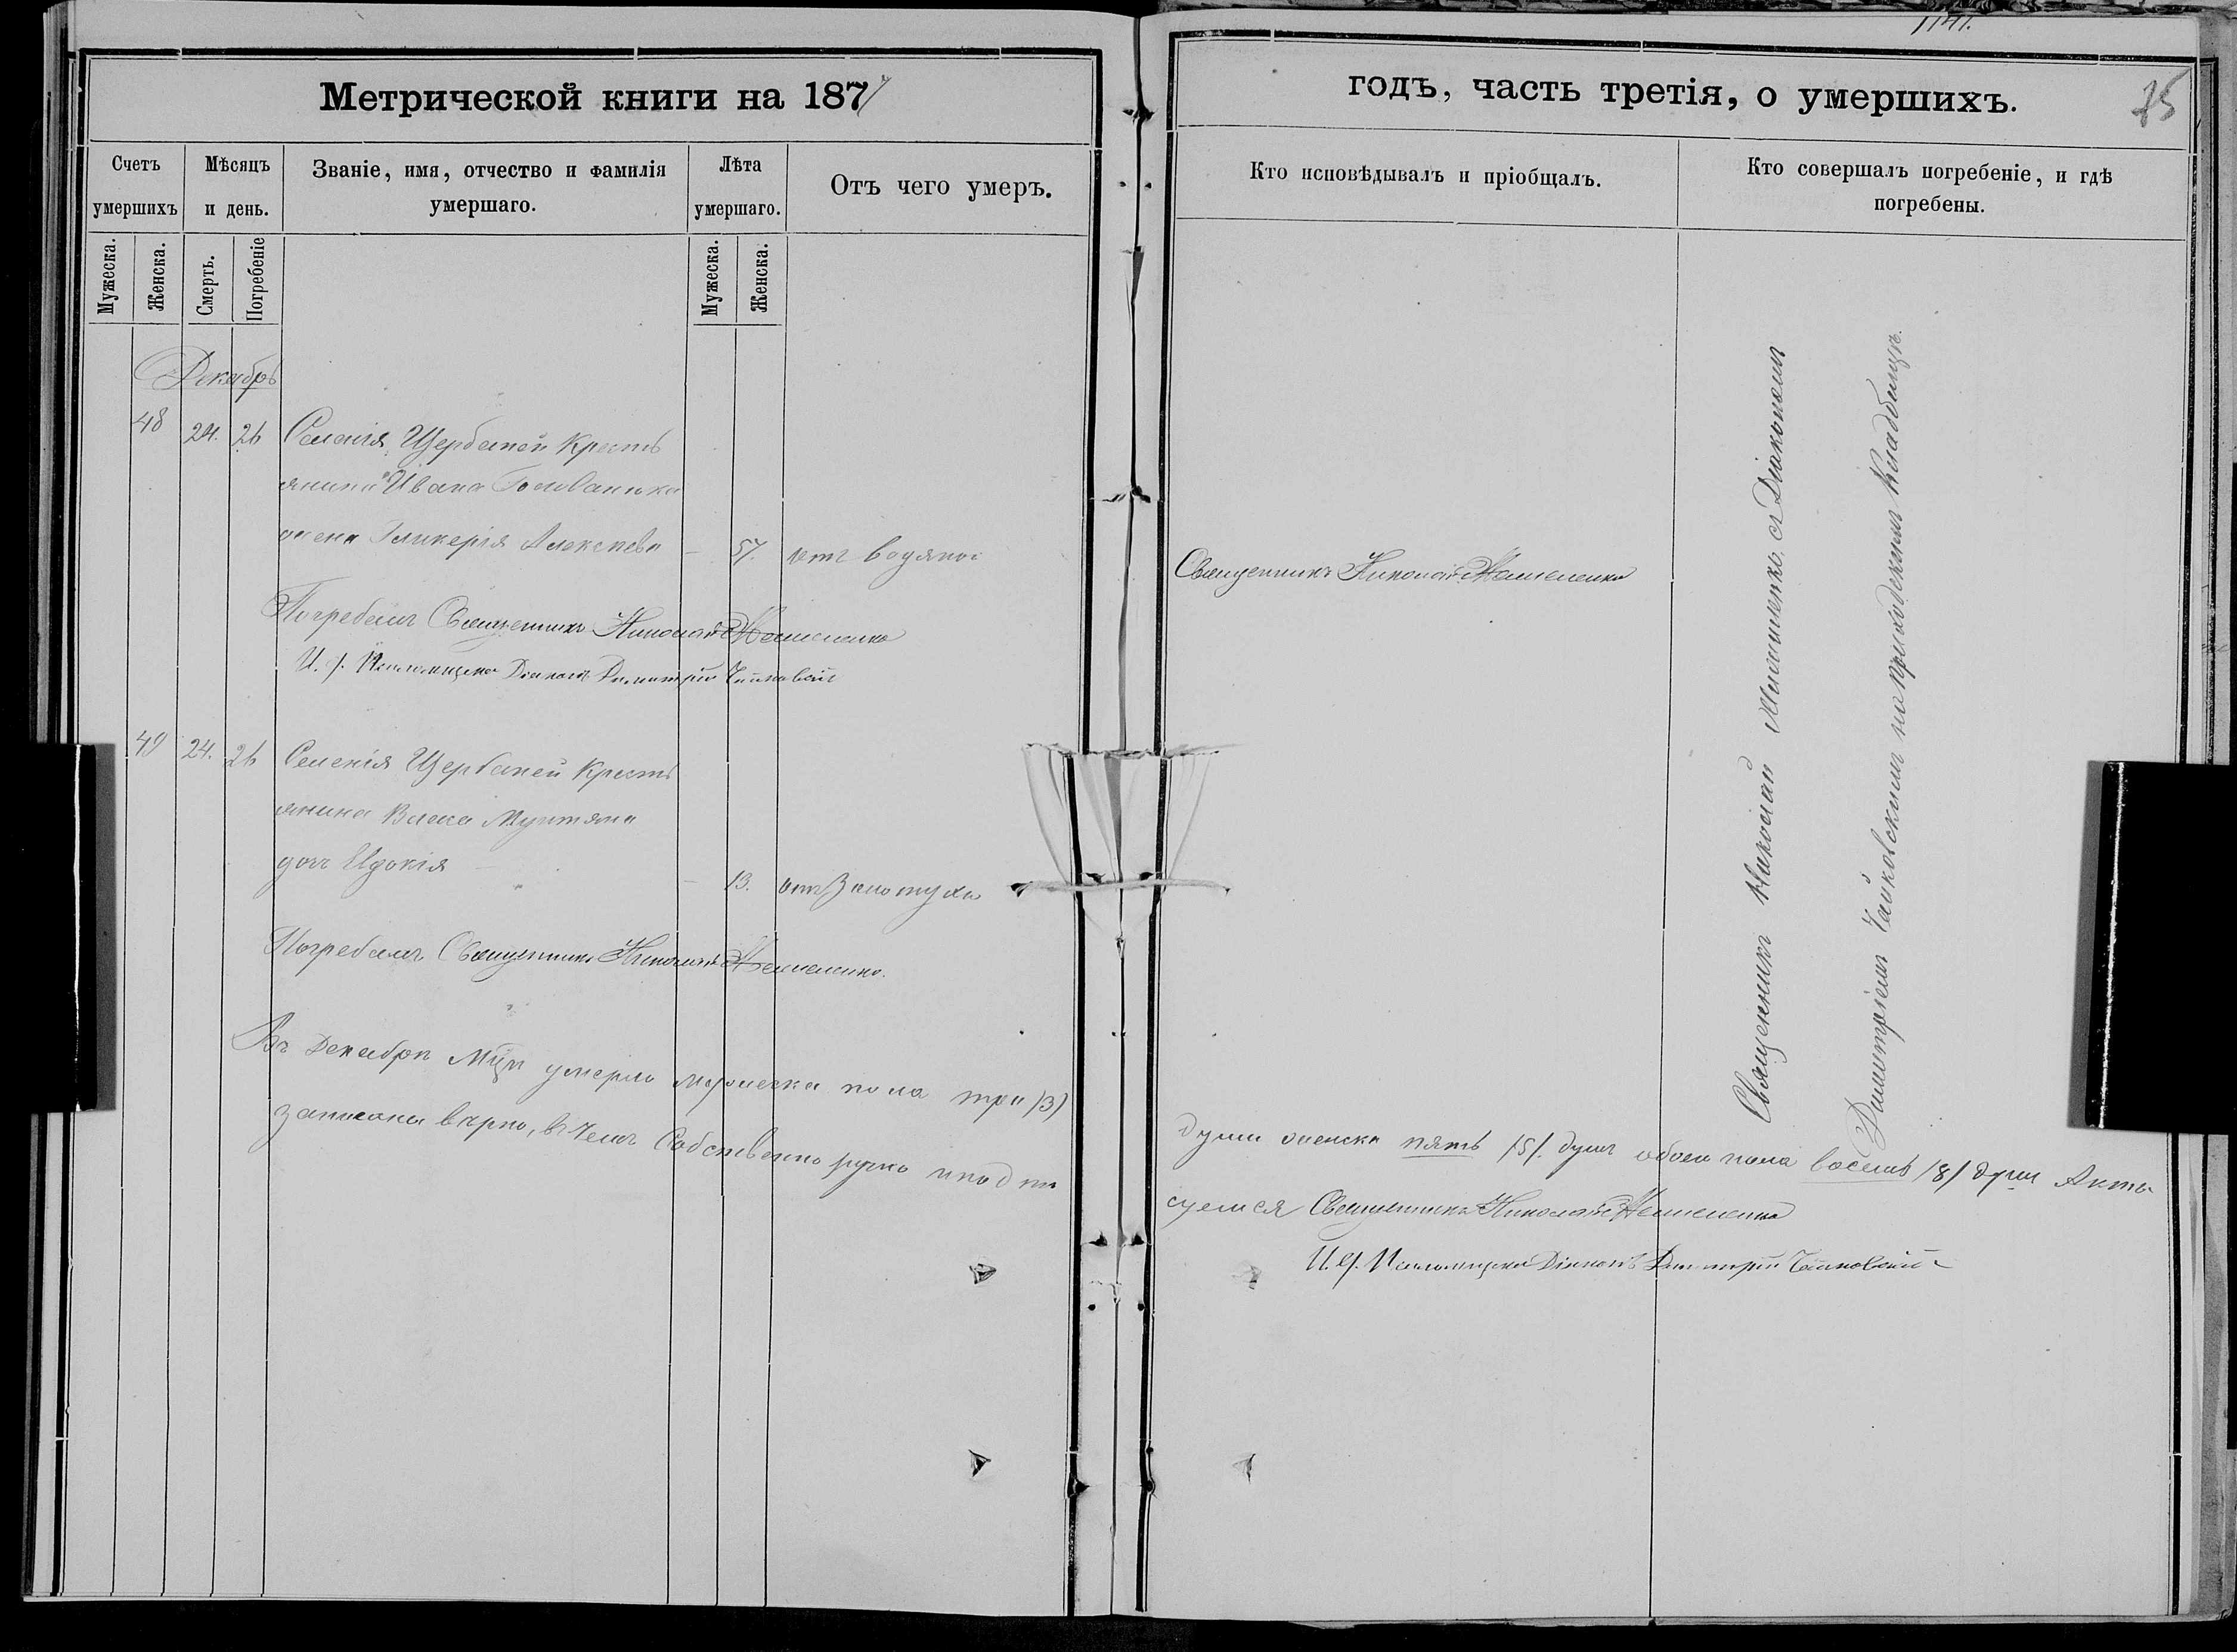 Метрической книги на 1877
Счетъ умершихъ
Мѣсяцъ и день.
Званіе, имя, отчество и фамилія умершаго.
Лѣта умершаго.
Отъ чего умеръ.
Мужеска.
Женска.
Смерть.
Погребеніе
Мужеска.
Женска.
Декабрь
48 24. 26 Селенія Щербаней Кресть
янина Ивана Голованюка
жена Гликерія Алексѣева – 57. отъ водяной
Погребалъ Священникъ Николай
И. д. Псаломщика Діаконъ Димитрій Чайковскій
49 24. 26 Селенія Щербаней Кресть
янина Власа Мунтяна
дочь – 13. отъ Золотухи
Погребалъ Священникъ Николай
Въ Декабрѣ Мцѣ умерло мужеска пола три /3/
записаны вѣрно, въ чемъ Собственно ручно и подпи
1141.
годъ, часть третія, о умершихъ.
75
Кто исповѣдывалъ и пріобщалъ.
Кто совершалъ погребеніе, и гдѣ погребены.
Священникъ Николай
Священникъ Николай съ Діакономъ
Димитріемъ Чайковскимъ на приходскомъ Кладбищѣ.
души женска пять /5/ душъ обоего пола восемь /8/ душъ Акты
суемся Священникъ Николай
И. д. Псаломщика Діаконъ Димитрій Чайковскій